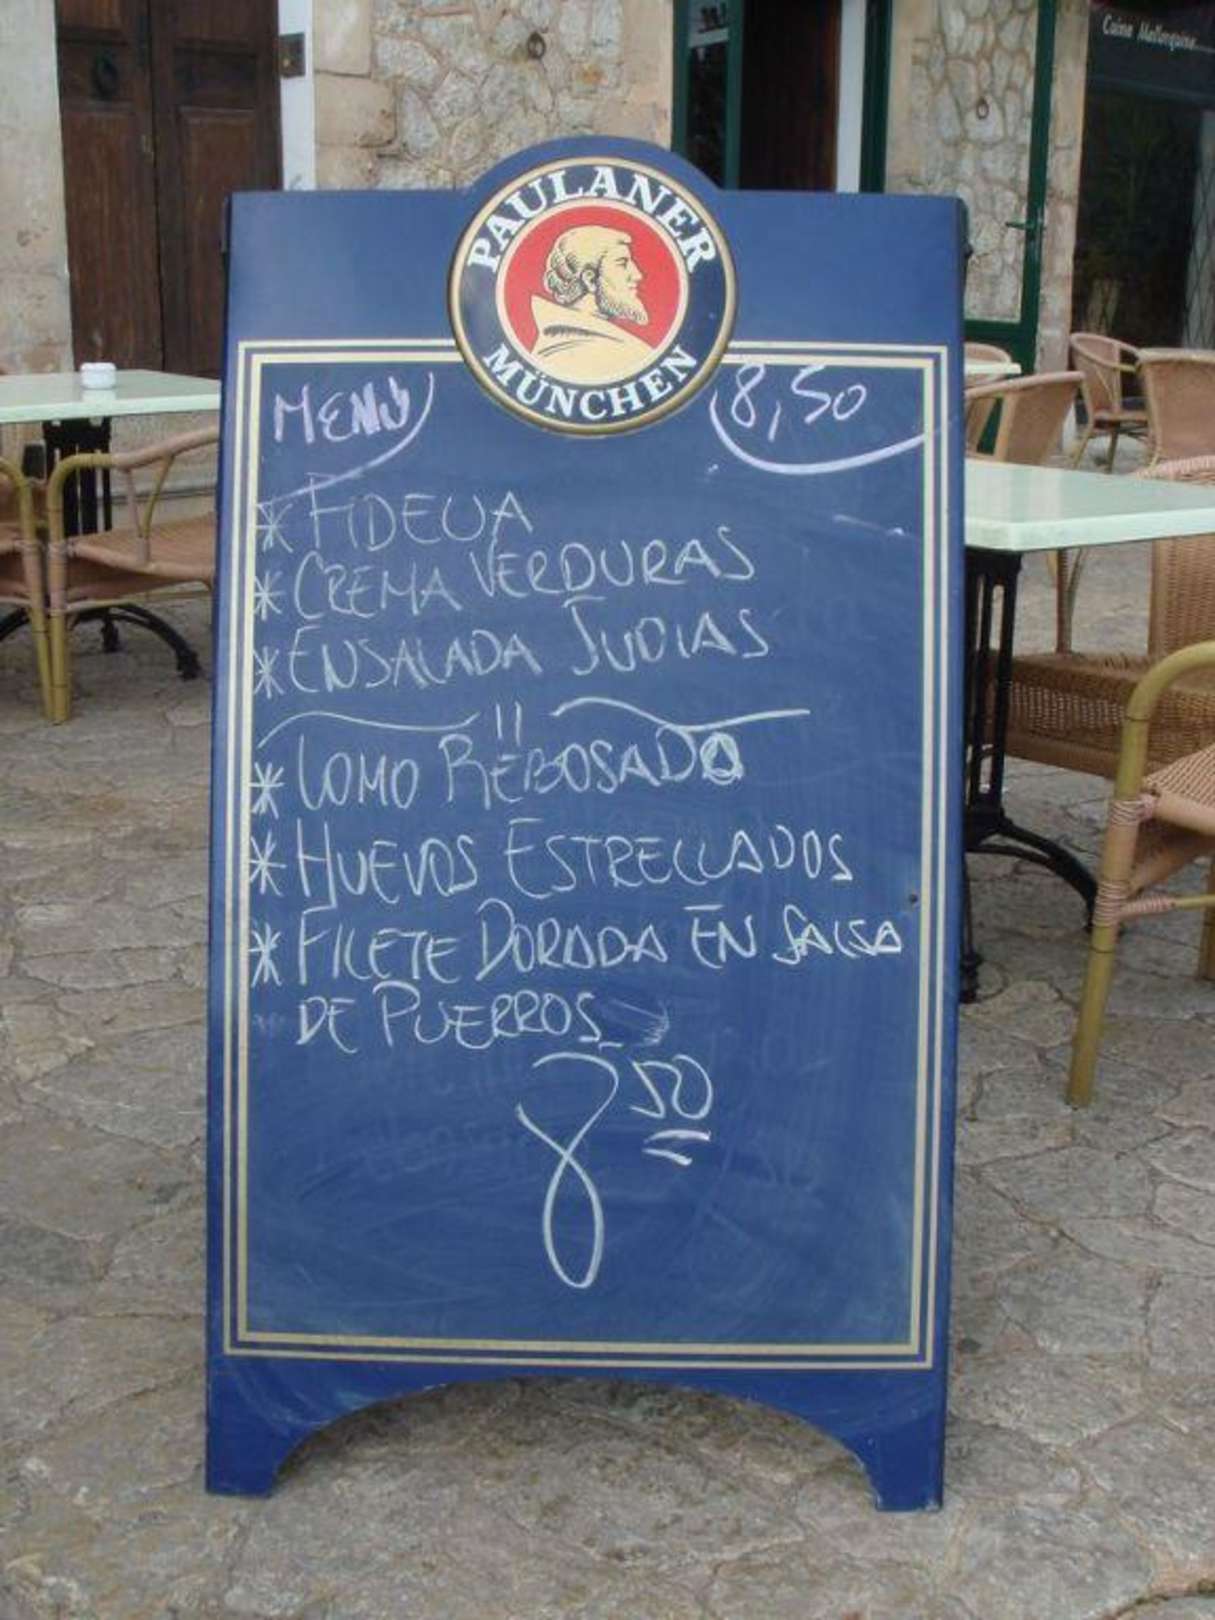 Cuina Mallorquina
PAULANER
MÜNCHEN
MENÚ 8,50
* FIDEUA
* CREMA VERDURAS
* ENSALADA JUDIAS
* LOMO REBOSADO
* HUEVOS ESTRELLADOS
* FILETE DORADA EN SALSA
DE PUERROS
8 50